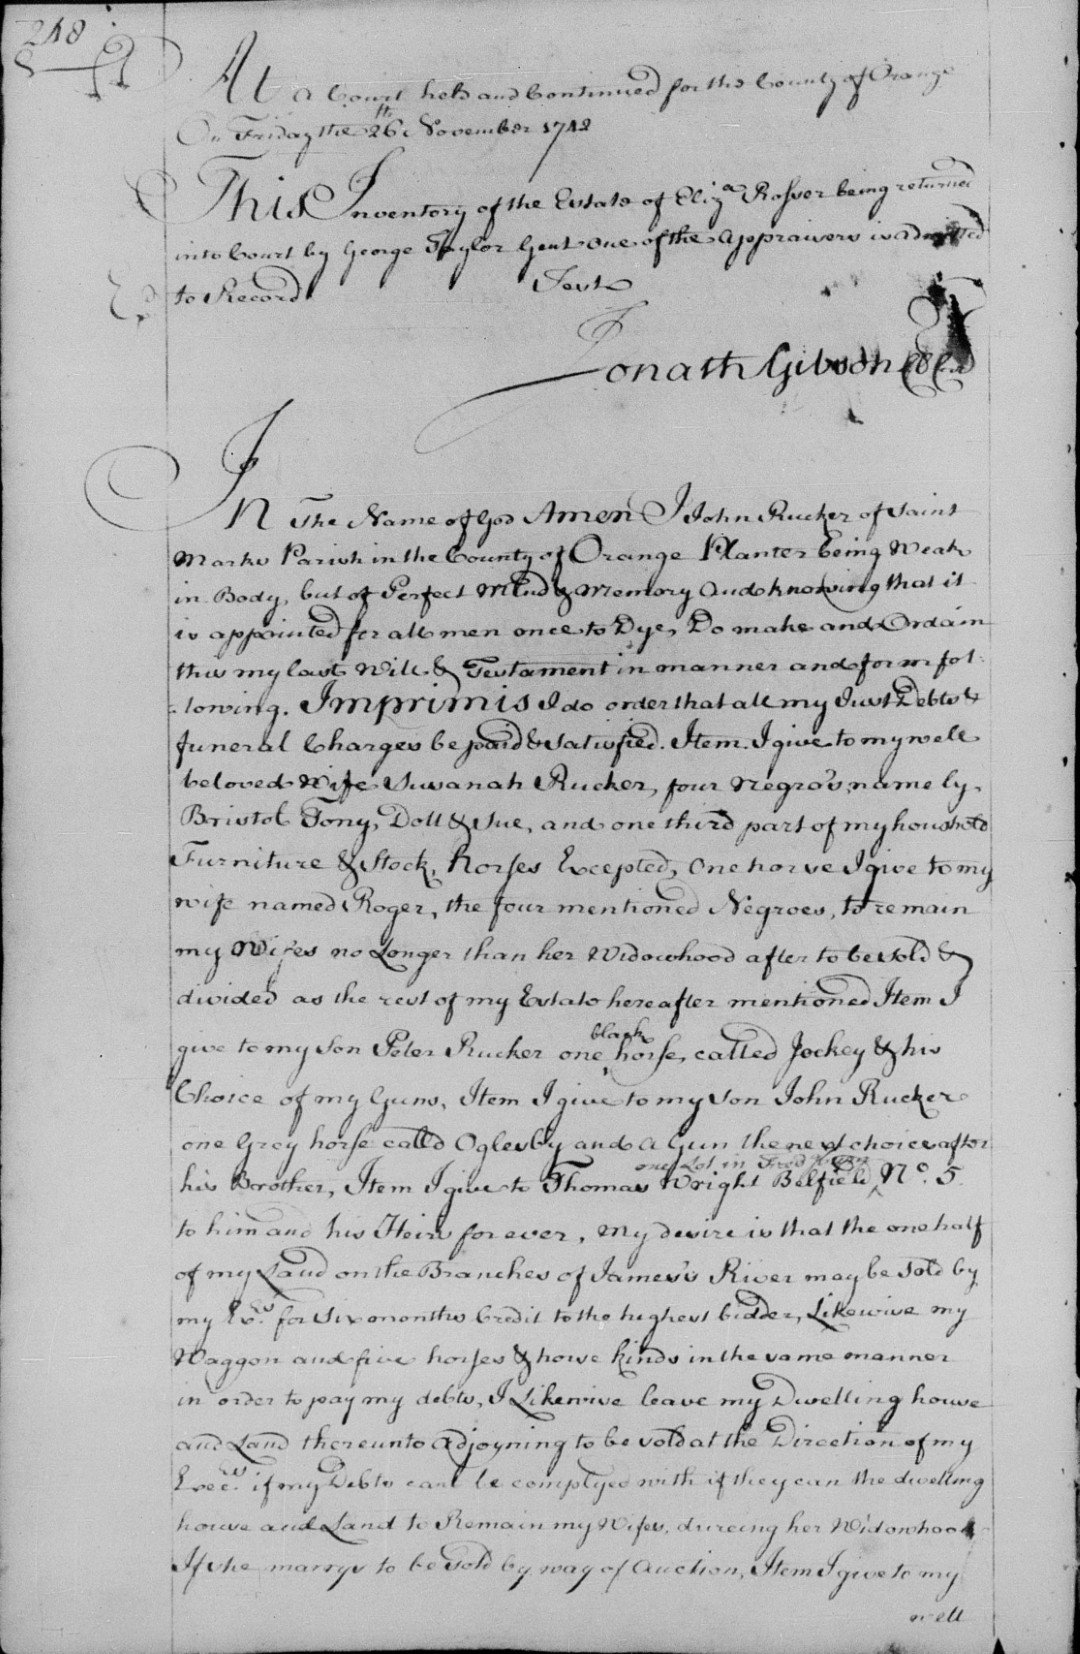 248
At a Court held and Continued for the County of Orange
On Friday the 26th November 1742
This Inventory of the Estate of Eliza Rosser being returned
into Court by George Taylor Gent one of the Appraisers is admitted
to Record Test
Jonath Gibson
In The Name of God Amen I John Rucker of Saint
Marks Parish in the County of Orange Planter being Weak
in Body, but of Perfect Mind & Memory And knowing that it
is appointed for all men once to Dye, Do make and Ordain
this my last Will & Testament in manner and form fol
lowing. Imprimis I do order that all my Just Debts &
funeral Charges be paid & satisfied. Item. I give to my well
beloved Wife Susanah Rucker, four Negro's, namely,
Bristol Tony, Doll & Sue, and one third part of my houshold
Furniture & Stock, horses Excepted, One horse I give to my
wife named Roger, the four mentioned Negroes, to remain
my Wifes no Longer than her Widowhood after to be sold &
divided as the rest of my Estate hereafter mentioned Item I
give to my Son Peter Rucker one black horse, called Jockey & his
Choice of my Guns, Item I give to my Son John Rucker
one Grey horse calld Oglesby and a Gun the next choice after
his Borother, Item I give to Thomas Wright Belfield one Lot in No. 5
to him and his Heirs for ever, my desire is that the one half
of my Land on the Branches of James's River may be sold by
my Exrs. for Six months Credit to the highest bidder, Likewise my
Waggon and five horses & howe kinds in the same manner
in order to pay my debts, I Likewise leave my Dwelling house
and Land thereunto Adjoyning to be sold at the Direction of my
Execrs. if my Debts cant be complyed with if they can the dwelling
house and Land to Remain my Wifes, dureing her Widowhood
If she marrys to be Sold by way of Auction, Item I give to my
well